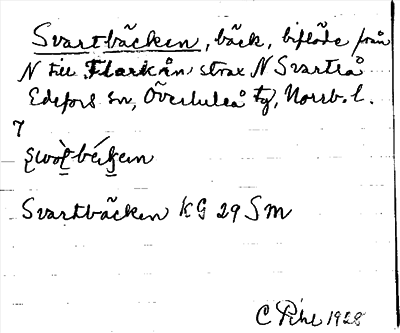 Svartbäcken, bäck, biflöde från
N till Flarkån strax N Svartlå
Edefors sn, Överluleå tg, Norrb. l.
7
Svartbäcken KG 29 Sm
C Pihl 1928